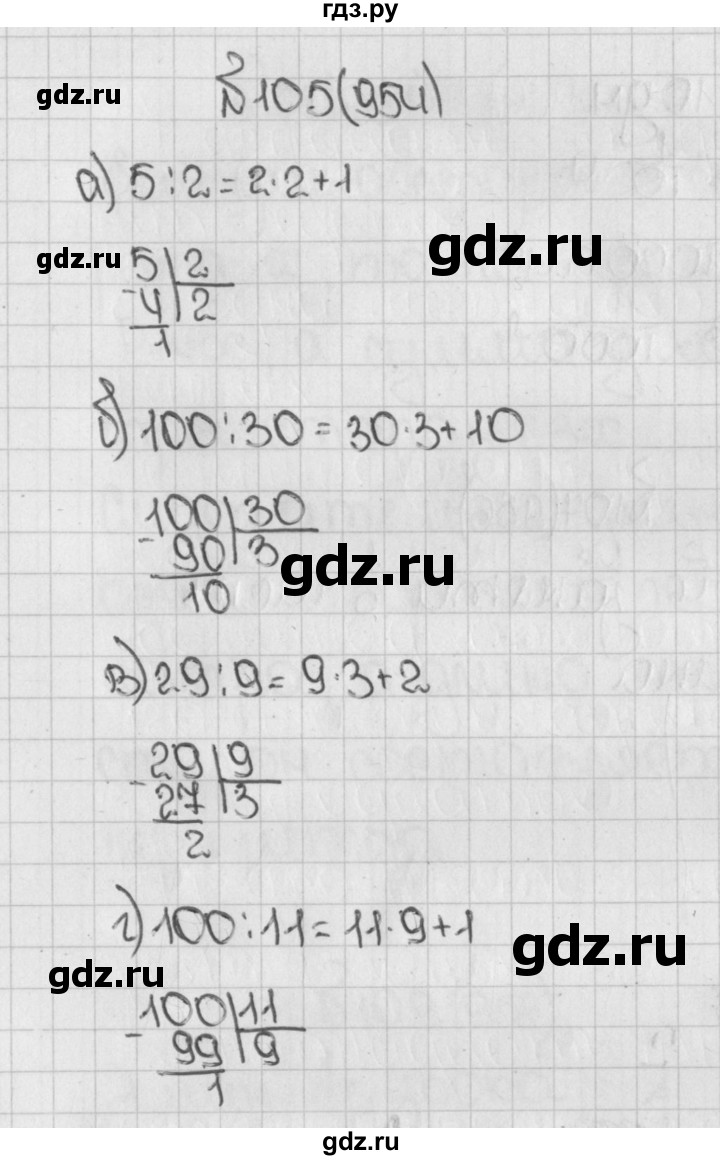 гдз.ру
gdz.ru
№105(954)
а) 5:2=2·2+1
gdz.ru
gdz.ru
5 2
-4 2
1
б) 100:30=30·3+10
100 30
-90 3
gdz.ru
10
в) 29:9=9·3+2
29 9
-27 3
2
г) 100:11=11·9+1
gdz.ru
gdz.ru
100 11
-99 9
1
gdz.ru